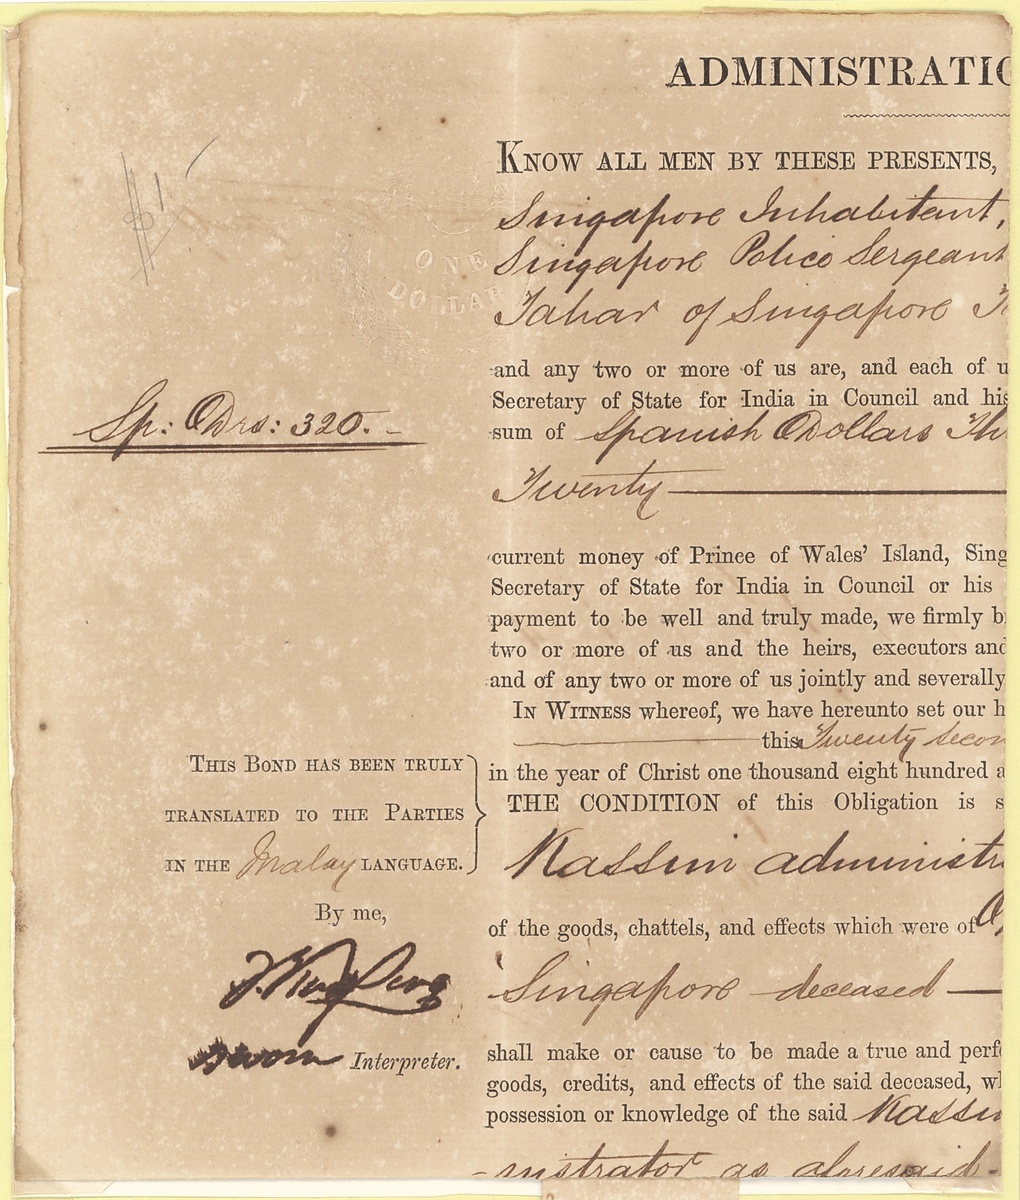 ADMINISTRATIO
KNOW ALL MEN BY THESE PRESENTS,
$1.
Singapore Inhabitant,
Singapore Police Sergeant
ONE
DOLLAR
Tahar of Singapore
and any two or more of us are, and each of u
Secretary of State for India in Council and his
Sp: Drs: 320.-
sum of Spanish Dollars Th
Twenty
current money of Prince of Wales' Island, Sing
Secretary of State for India in Council or his
payment to be well and truly made, we firmly b
two or more of us and the heirs, executors and
and of any two or more of us jointly and severally
IN WITNESS whereof, we have hereunto set our h
this Twenty Secon
in the year of Christ one thousand eight hundred a
THE CONDITION of this Obligation is s
THIS BOND HAS BEEN TRULY
TRANSLATED TO THE PARTIES
IN THE Malay LANGUAGE.
By me,
Sworn Interpreter.
Kassim administr
of the goods, chattels, and effects which were of
Singapore deceased
shall make or cause to be made a true and perfe
goods, credits, and effects of the said deceased, wh
possession or knowledge of the said Kassi
-nistrator as aforesaid-